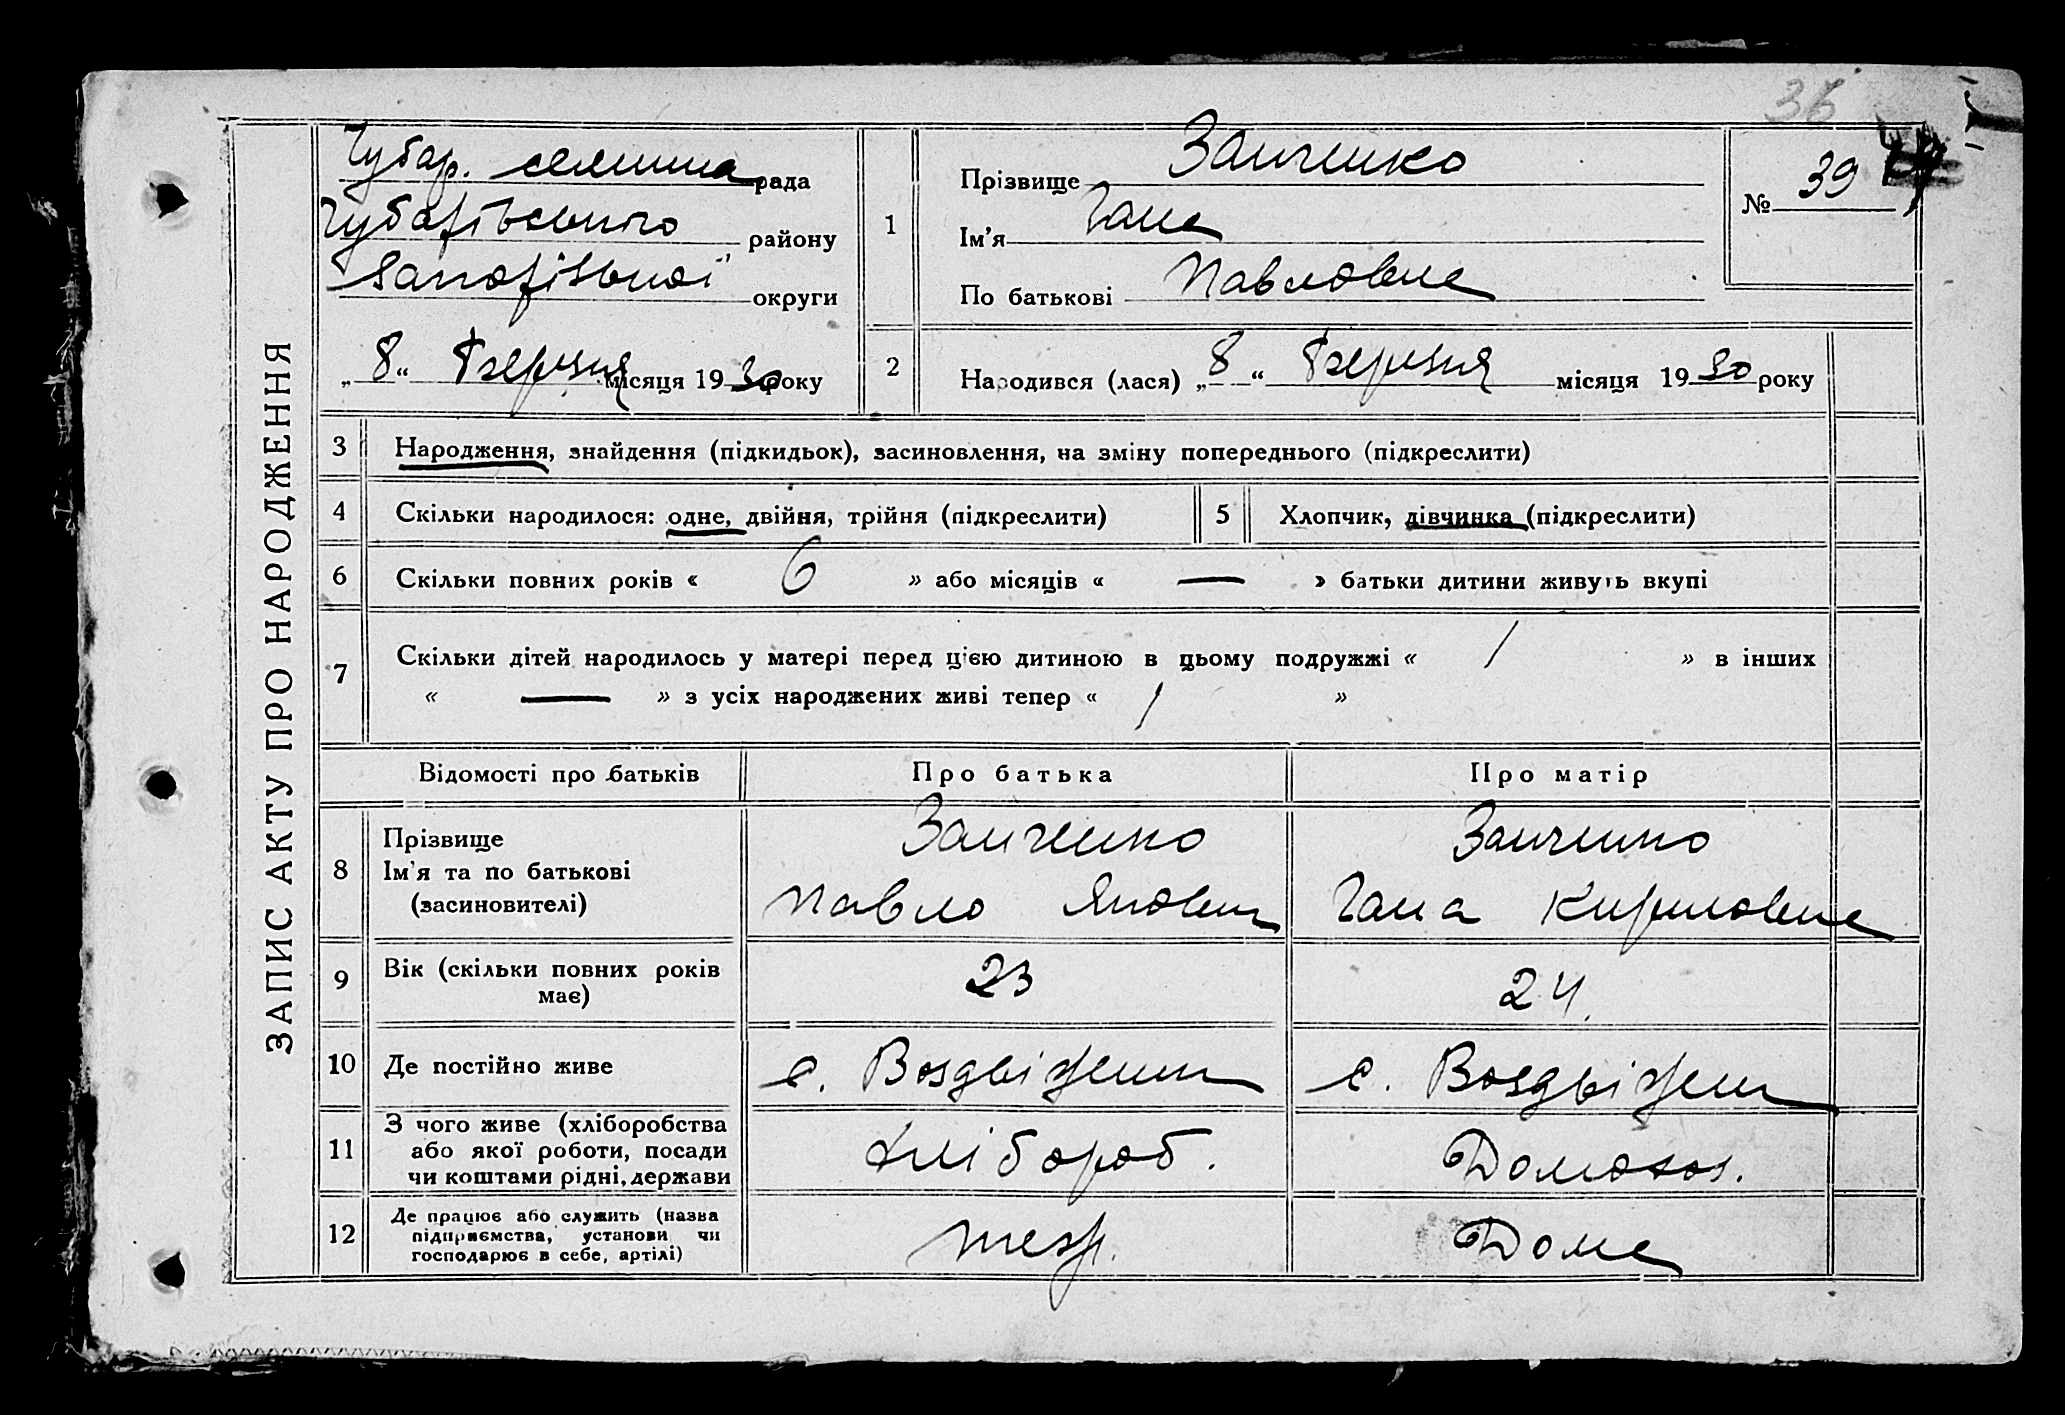 36
ЗАПИС АКТУ ПРО НАРОДЖЕННЯ
Чубар. селищна рада
Чубарівського району
Запорізької округи
„8“ березня місяця 1930 року
1
Прізвище Заиченко
Ім’я Гана
По батькові Павловна
№ 39
2
Народився (лася) „8“ березня місяця 1930 року
3 Народження, знайдення (підкидьок), засиновлення, на зміну попереднього (підкреслити)
4 Скільки народилося: одне, двійня, трійня (підкреслити) 5 Хлопчик, дівчинка (підкреслити)
6 Скільки повних років « 6 » або місяців « — » батьки дитини живуть вкупі
7 Скільки дітей народилось у матері перед цією дитиною в цьому подружжі « 1 » в інших
« — » з усіх народжених живі тепер « 1 »
Відомості про батьків Про батька Про матір
8 Прізвище
Ім’я та по батькові
(засиновителі)
Заиченко
Павло Якович
Заиченко
Гана Кириловна
9 Вік (скільки повних років
має)
23 24.
10 Де постійно живе с. Воздвіжен с. Воздвіжен
11 З чого живе (хліборобства
або якої роботи, посади
чи коштами рідні, держави
хлібороб. Домохоз.
12 Де працює або служить (назва
підприємства, установи чи
господарює в себе, артілі)
Дома